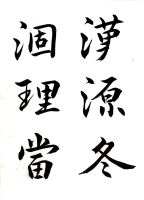 漢源冬
涸理當